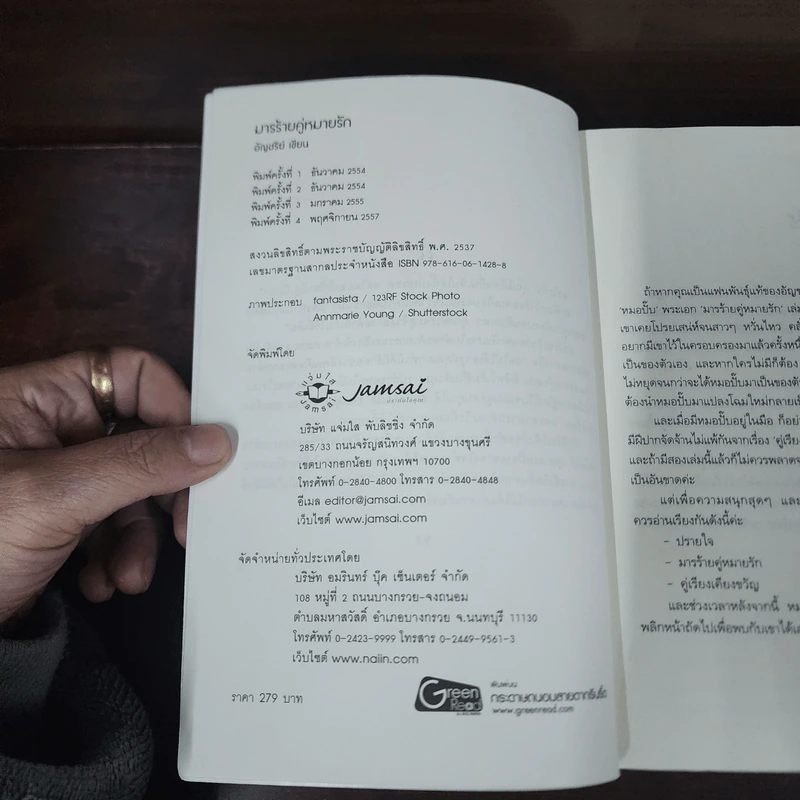 มารร้ายคู่หมายรัก
อัญชรีย์ เขียน
พิมพ์ครั้งที่ 1 ธันวาคม 2554
พิมพ์ครั้งที่ 2 ธันวาคม 2554
พิมพ์ครั้งที่ 3 มกราคม 2555
พิมพ์ครั้งที่ 4 พฤศจิกายน 2557
สงวนลิขสิทธิ์ตามพระราชบัญญัติลิขสิทธิ์ พ.ศ. 2537
เลขมาตรฐานสากลประจำหนังสือ ISBN 978-616-06-1428-8
ภาพประกอบ fantasista / 123RF Stock Photo
Annmarie Young / Shutterstock
จัดพิมพ์โดย
แจ่มใส
jamsai
jamsai
บริษัท แจ่มใส พับลิชชิ่ง จำกัด
285/33 ถนนจรัญสนิทวงศ์ แขวงบางขุนศรี
เขตบางกอกน้อย กรุงเทพฯ 10700
โทรศัพท์ 0-2840-4800 โทรสาร 0-2840-4848
อีเมล editor@jamsai.com
เว็บไซต์ www.jamsai.com
จัดจำหน่ายทั่วประเทศโดย
บริษัท อมรินทร์ บุ๊ค เซ็นเตอร์ จำกัด
108 หมู่ที่ 2 ถนนบางกรวย-จงถนอม
ตำบลมหาสวัสดิ์ อำเภอบางกรวย จ.นนทบุรี 11130
โทรศัพท์ 0-2423-9999 โทรสาร 0-2449-9561-3
เว็บไซต์ www.naiin.com
ราคา 279 บาท
Green Read
พิมพ์บน
กระดาษถนอมสายตากรีนรี้ด
www.greenread.com
ถ้าหากคุณเป็นแฟนพันธุ์แท้ของอัญช
'หมอปั๊บ' พระเอก 'มารร้ายคู่หมายรัก' เล่ม
เขาเคยโปรยเสน่ห์จนสาวๆ หวั่นไหว
อยากมีเขาไว้ในครอบครองมาแล้วครั้งหนึ่
เป็นของตัวเอง และหากใครไม่มีก็ต้อง
ไม่หยุดจนกว่าจะได้หมอปั๊บมาเป็นของตั
ต้องนำหมอปั๊บมาแปลงโฉมใหม่กลายเป็
และเมื่อมีหมอปั๊บอยู่ในมือ ก็อย่า
มีฝีปากจัดจ้านไม่แพ้กันจากเรื่อง 'คู่เรีย
และถ้ามีสองเล่มนี้แล้วก็ไม่ควรพลาด
เป็นอันขาดค่ะ
แต่เพื่อความสนุกสุดๆ และ
ควรอ่านเรียงกันดังนี้ค่ะ
- ปรายใจ
- มารร้ายคู่หมายรัก
- คู่เรียงเคียงขวัญ
และช่วงเวลาหลังจากนี้ หม
พลิกหน้าถัดไปเพื่อพบกับเขาได้เล